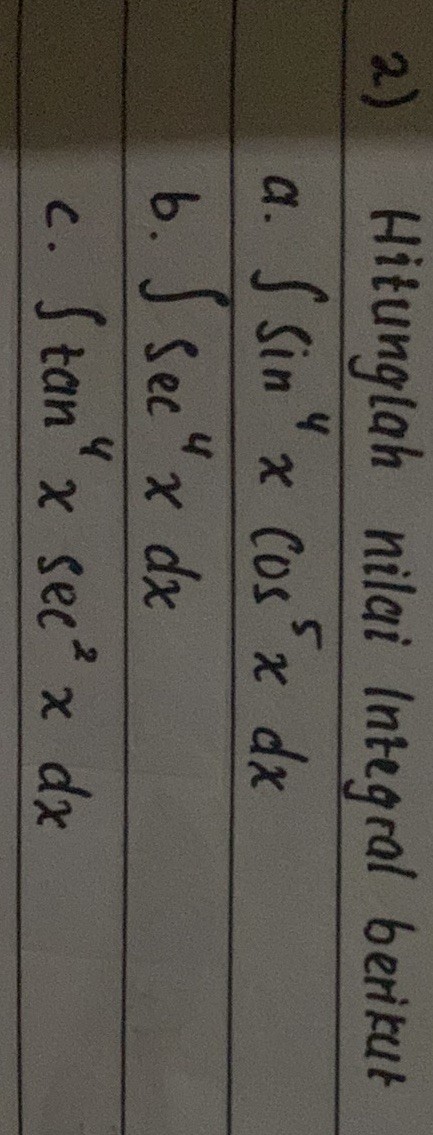 2) Hitunglah nilai Integral berikut
a. ∫ Sin⁴ x Cos⁵ x dx
b. ∫ Sec⁴ x dx
c. ∫ tan⁴ x sec² x dx